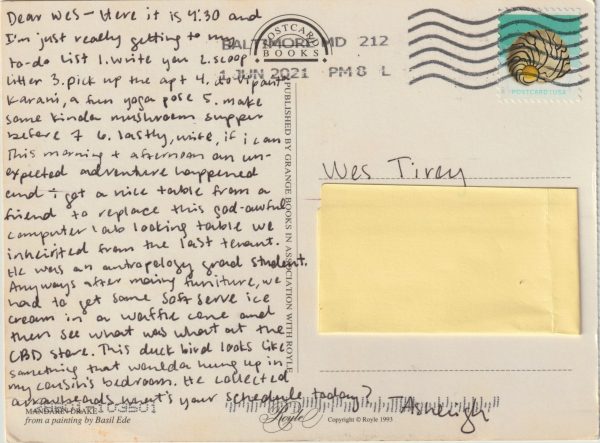 Dear Wes - Here it is 4:30 and
I'm just really getting to my
to-do list 1. write you 2. scoop
litter 3. pick up the apt 4. do vipanta
Karani, a fun yoga pose 5. make
some kinda mushroom supper
before 7 6. lastly, write, if i can
This morning + afternoon an un-
expected adventure happened
and i got a nice table from a
friend to replace this god-awful
computer lab looking table we
inherited from the last tenant.
He was an antropology grad student.
Anyways after moving furniture, we
had to get some soft serve ice
cream in a waffle cone and
then see what was what at the
CBD store. This duck bird looks like
something that woulda hung up in
my cousin's bedroom. He collected
arrowheads. What's your schedule today? Ashleigh
MANDARIN DRAKE
from a painting by Basil Ede
POSTCARD BOOKS
PUBLISHED BY GRANGE BOOKS IN ASSOCIATION WITH ROYLE
Royle
Copyright © Royle 1993
BALTIMORE MD 212
1 JUN 2021 PM 8 L
POSTCARD | USA
Wes Tirey